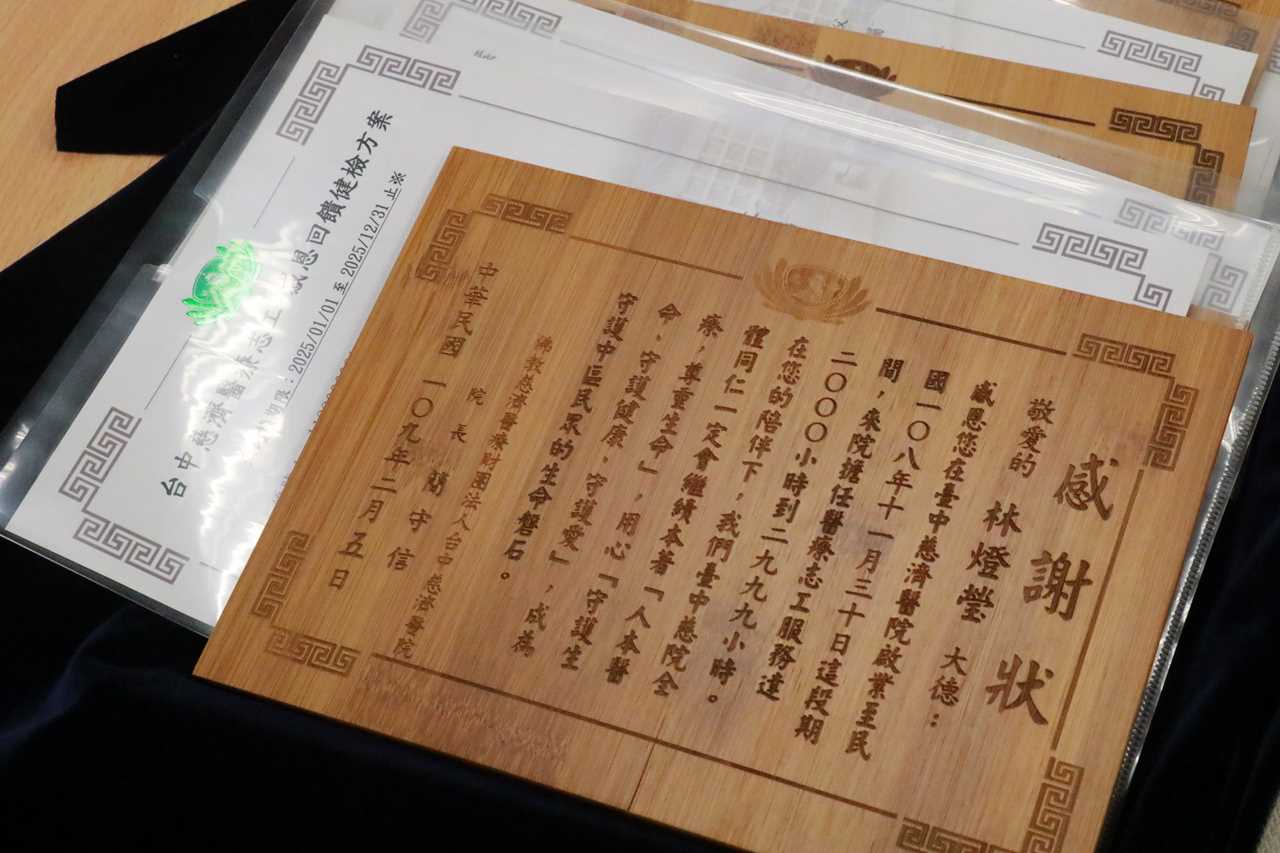 感謝狀
敬愛的 林燈瑩 大德：
感恩您在臺中慈濟醫院啟業至民
國一〇八年十一月三十日這段期
間，來院擔任醫療志工服務達
二〇〇〇小時到二九九九小時。
在您的陪伴下，我們臺中慈院全
體同仁一定會繼續本著「人本醫
療，尊重生命」，用心「守護生
命、守護健康、守護愛」，成為
守護中區民眾的生命磐石。
佛教慈濟醫療財團法人台中慈濟醫院
院長 簡守信
中華民國 一〇九年二月五日
台中慈濟醫療志工感恩回饋健檢方案
期限：2025/01/01 至 2025/12/31 止※